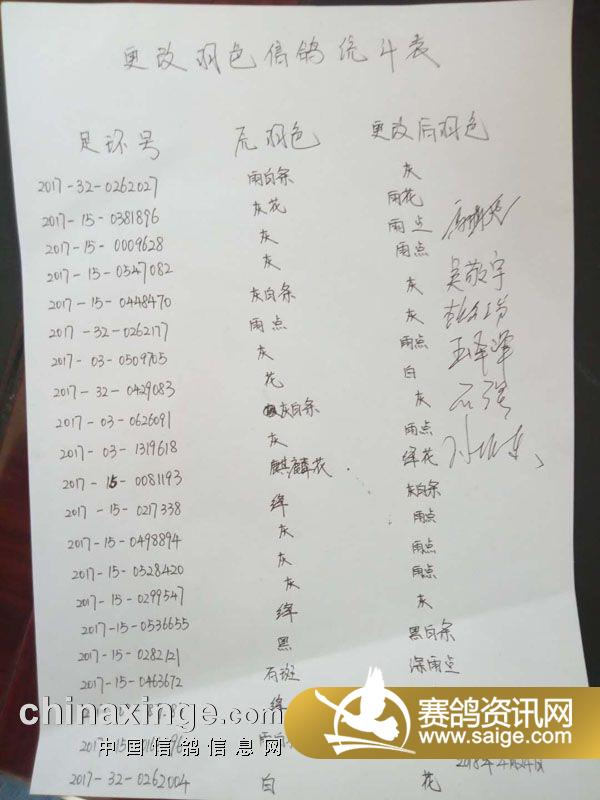 更改羽色信鸽统计表
足环号 元羽色 更改后羽色
2017-32-0262027 雨白条 灰
2017-15-0381896 灰花 雨花
2017-15-0009628 灰 雨点
2017-15-0547082 灰 雨点
2017-15-0448470 灰白条 灰 吴敬宇
2017-32-0262177 雨点 灰
2017-03-0509705 灰 雨点 王泽泽
2017-32-0429083 花 白
2017-03-0626091 灰白条 灰 石强
2017-03-1319618 灰 雨点
2017-15-0081193 麒麟花 绛花
2017-15-0217338 绛 灰白条
2017-15-0498894 灰 雨点
2017-15-0328420 灰 雨点
2017-15-0299547 灰 雨点
2017-15-0536655 绛 灰
2017-15-0282121 黑 黑白条
2017-15-0463672 石斑 深雨点
绛
2017-15- 雨白条
2017-32-0262004 白 花
2018年4月
chinaxinge.com
中国信鸽信息网
赛鸽资讯网
www.saige.com